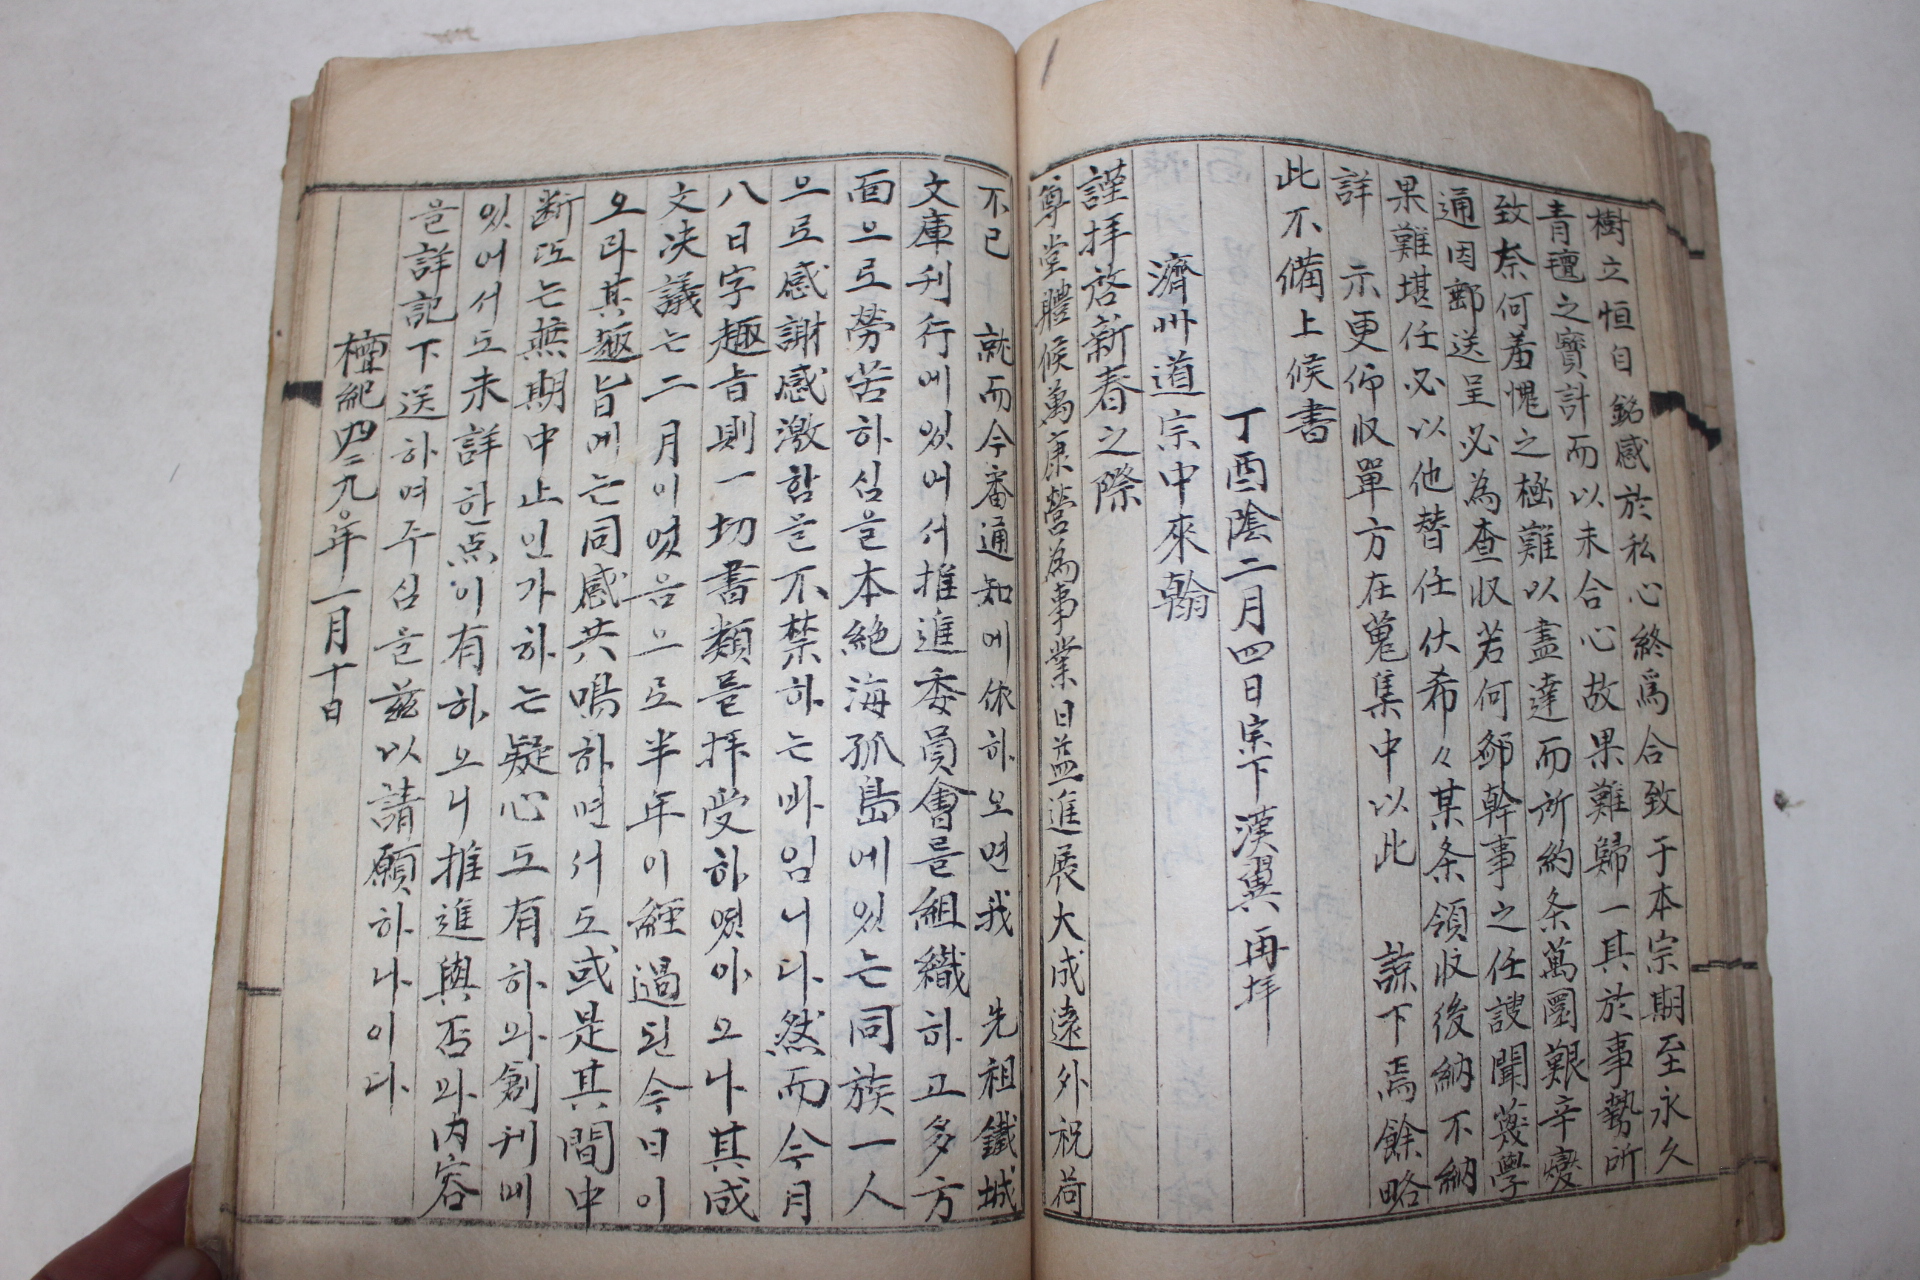 樹立恒自銘感於私心終爲合致于本宗期至永久
青氊之寶計而以未合心故果難歸一其於事勢所
致奈何羞愧之極難以盡達而所約条萬圜艱辛變
通因郵送呈必為查收若何 幹事之任謏聞蔑學
果難堪任必以他替任伏希々某条領收後納不納
詳 示更仰收單方在蒐集中以此 諒下焉餘略
此不備上候書
丁酉陰二月四日宗下漢翼再拜
濟州道宗中來翰
謹拜啓新春之際
尊堂體候萬康營為事業日益進展大成遠外祝荷
不已 就而今番通知에依하오면我 先祖鐵城
文庫刊行에있어서推進委員會를組織하고多方
面으로勞苦하심을本絶海孤島에있는同族一人
으로感謝感激함을不禁하는바임니다然而今月
八日字趣旨則一切書類를拝受하였아오나其成
文决議는二月이였음으로半年이經過된今日이
오라其趣旨에는同感共鳴하면서도或是其間中
断또는無期中止인가하는疑心도有하와創刊에
있어서도未詳한点이有하오니推進與否와内容
을詳記下送하여주심을玆以請願하나이다
檀紀四二九〇年一月十日